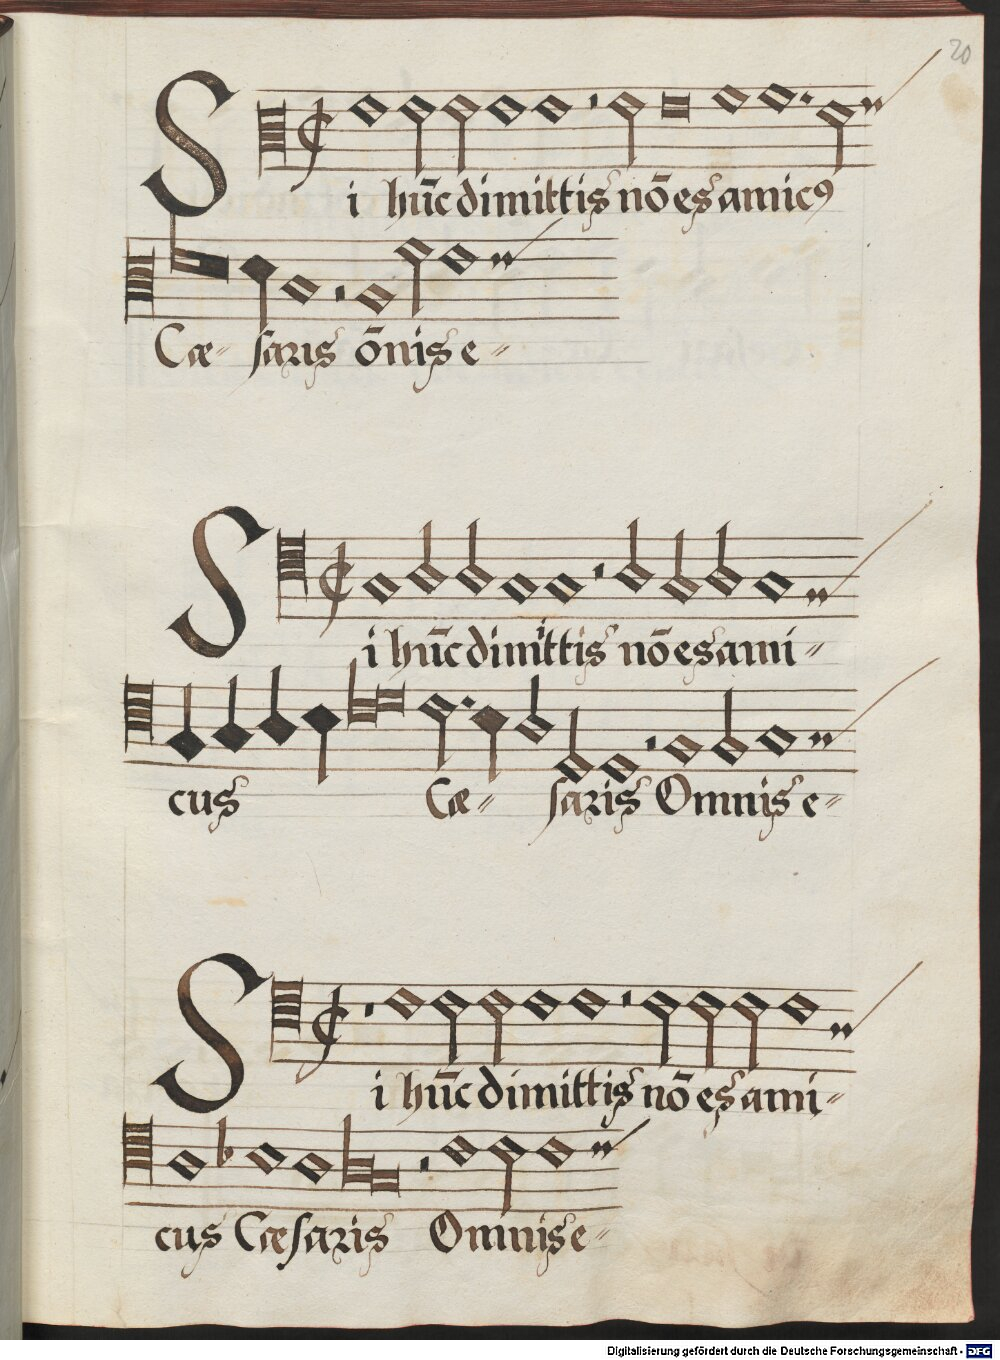 20
Si hūc dimittis nō es amicꝰ
Cæ- saris ōnis e-
Si hūc dimittis nō es ami-
cus Cæ- saris Omnis e-
Si hūc dimittis nō es ami-
cus Cæsaris Omnis e-
Digitalisierung gefördert durch die Deutsche Forschungsgemeinschaft - DFG